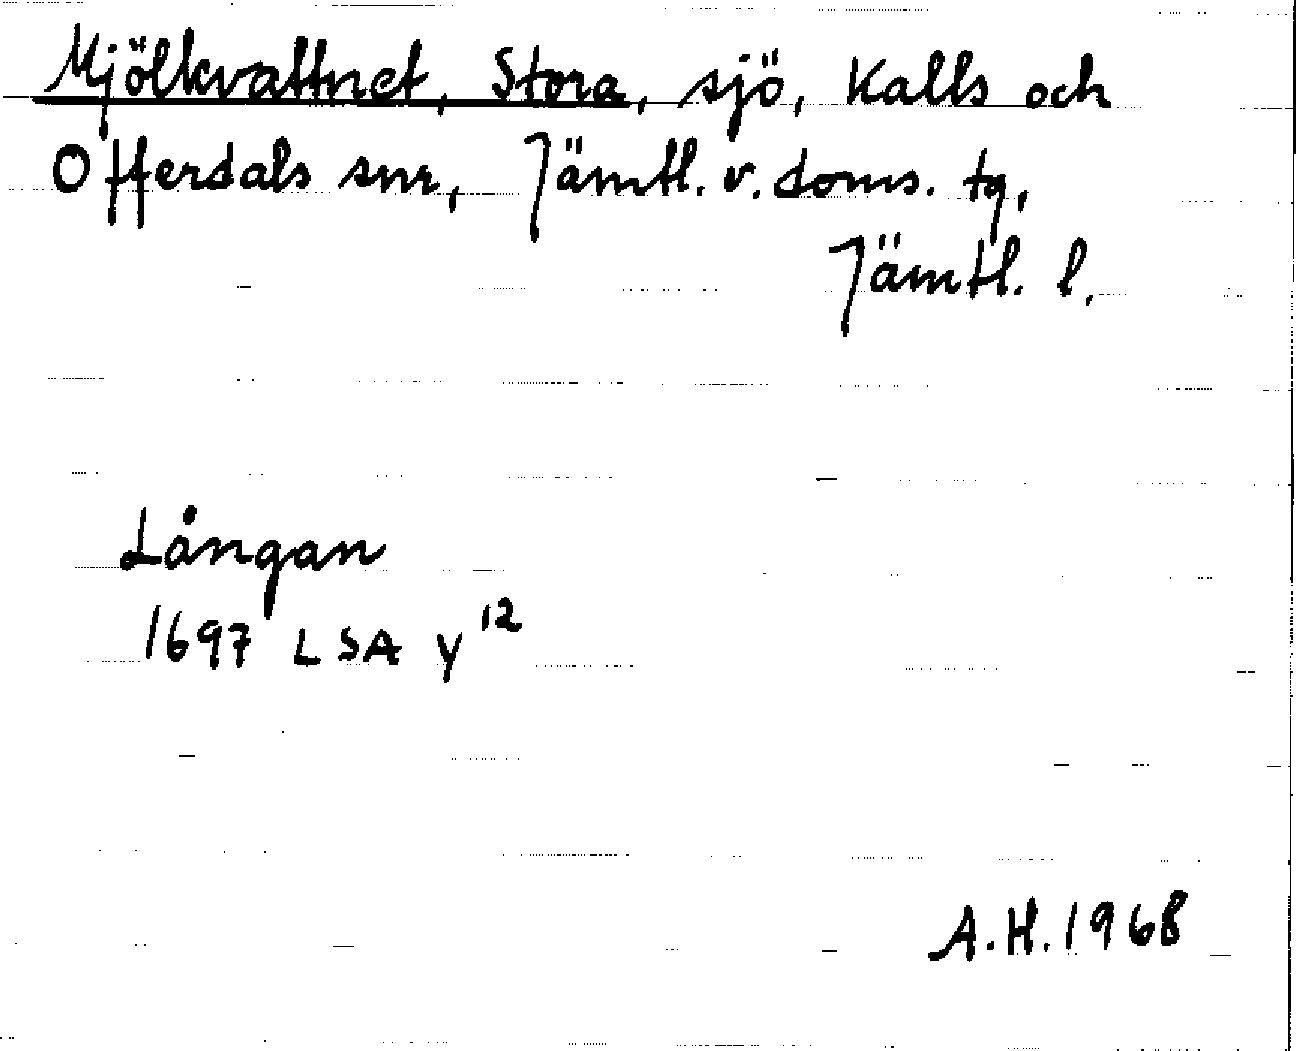 Mjölkvattnet, Stora, sjö, Kalls och
Offerdals snr, Jämtl. v. doms. tg,
Jämtl. l.
Långan
1697 LSA Y 12
A.H. 1968